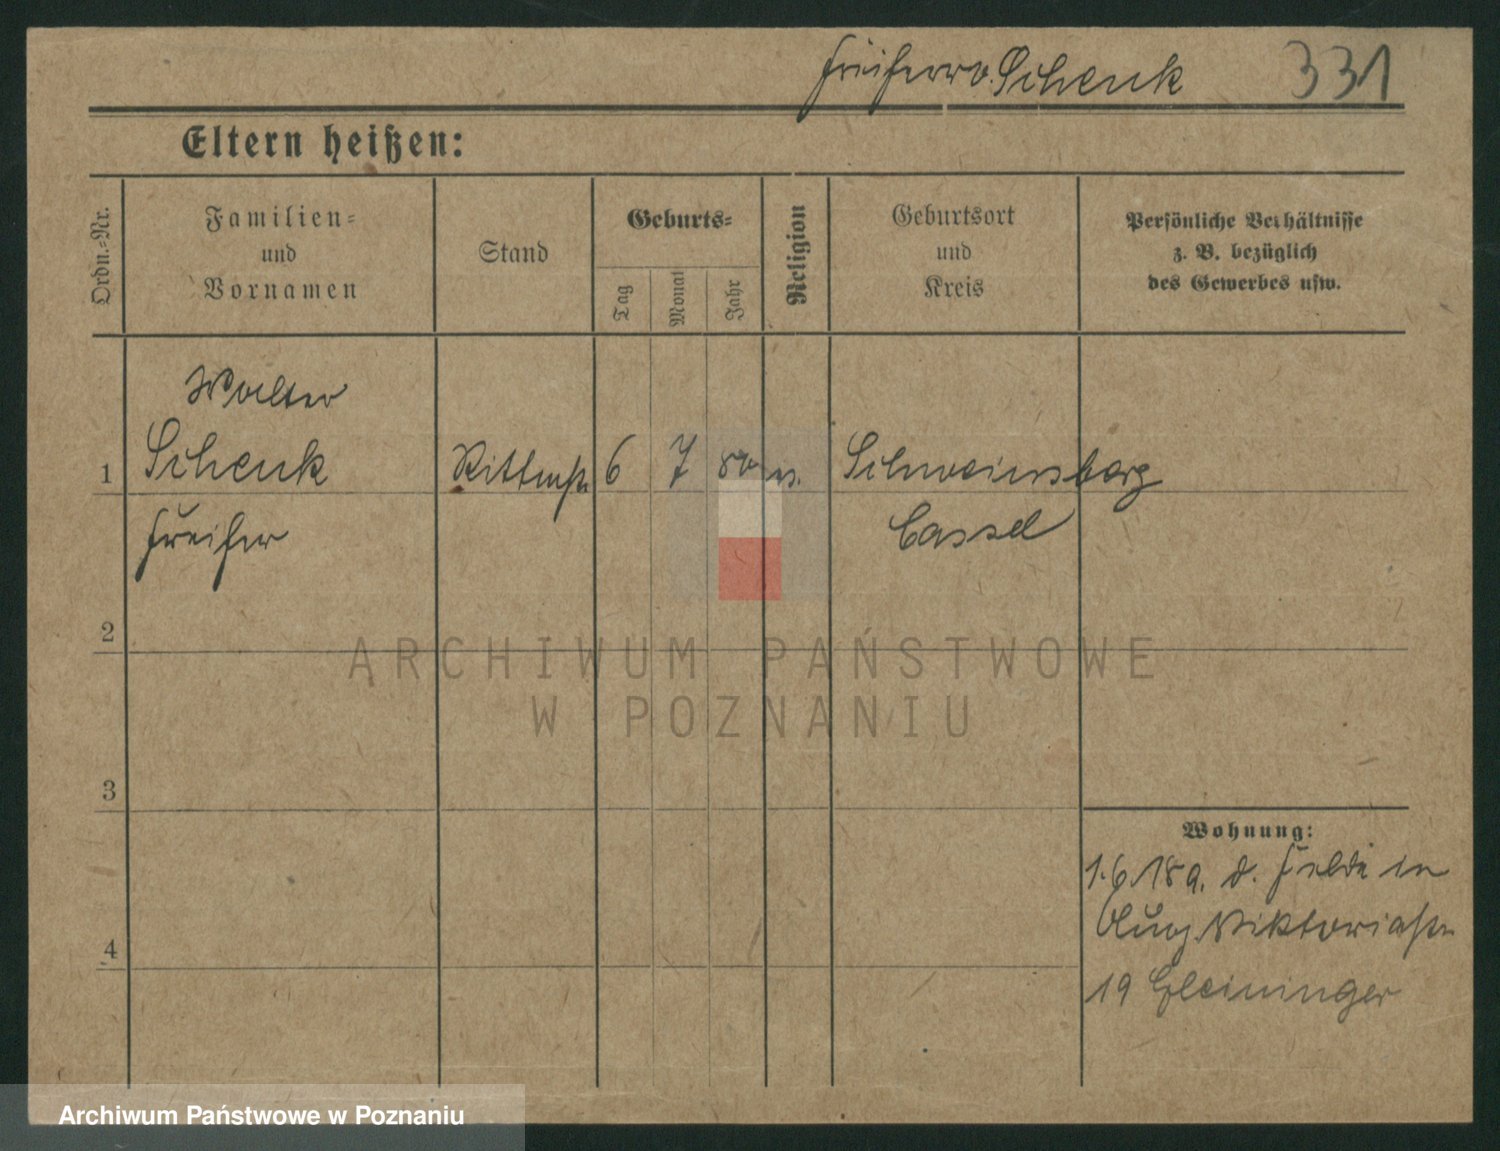 Freiherr v. Schenk 331
Eltern heißen:
Ordn.=Nr.
Familien=
und
Vornamen
Stand
Geburts=
Tag
Monat
Jahr
Religion
Geburtsort
und
Kreis
Persönliche Verhältnisse
z. B. bezüglich
des Gewerbes usw.
Walter
1 Schenk Rittmstr. 6 7 80 ev. Schweinsberg
Freiherr Cassel
2
3
4
Wohnung:
1.6.18 a. d. Felde in
Viktoriastr.
19 Gleininger
ARCHIWUM PAŃSTWOWE
W POZNANIU
Archiwum Państwowe w Poznaniu